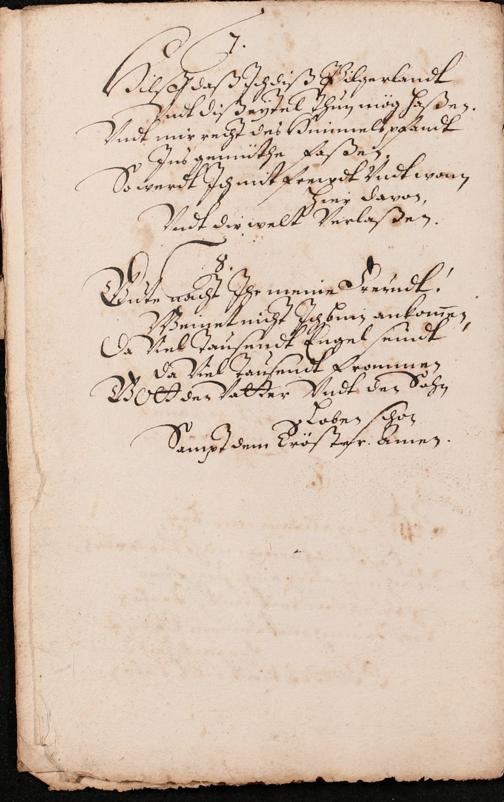 7.
Hilff daß Ich diß Pilgerlandt
Vndt diß eytel Thun mög haßen.
Vndt mir recht des Himmels pfandt
Ins gemüthe faßen,
So werdt Ich mit freudt Vndt wonn
hier davon,
Vndt die welt Verlaßen.
8.
Gute nacht Ihr meine Freundt!
Weinet nicht Ich bin ankommen,
Da Viel Tausendt Engel seindt
da Viel Tausendt Frommen
Gott den Vatter Vndt den Sohn
Loben schon
Sampt dem Tröster. Amen.